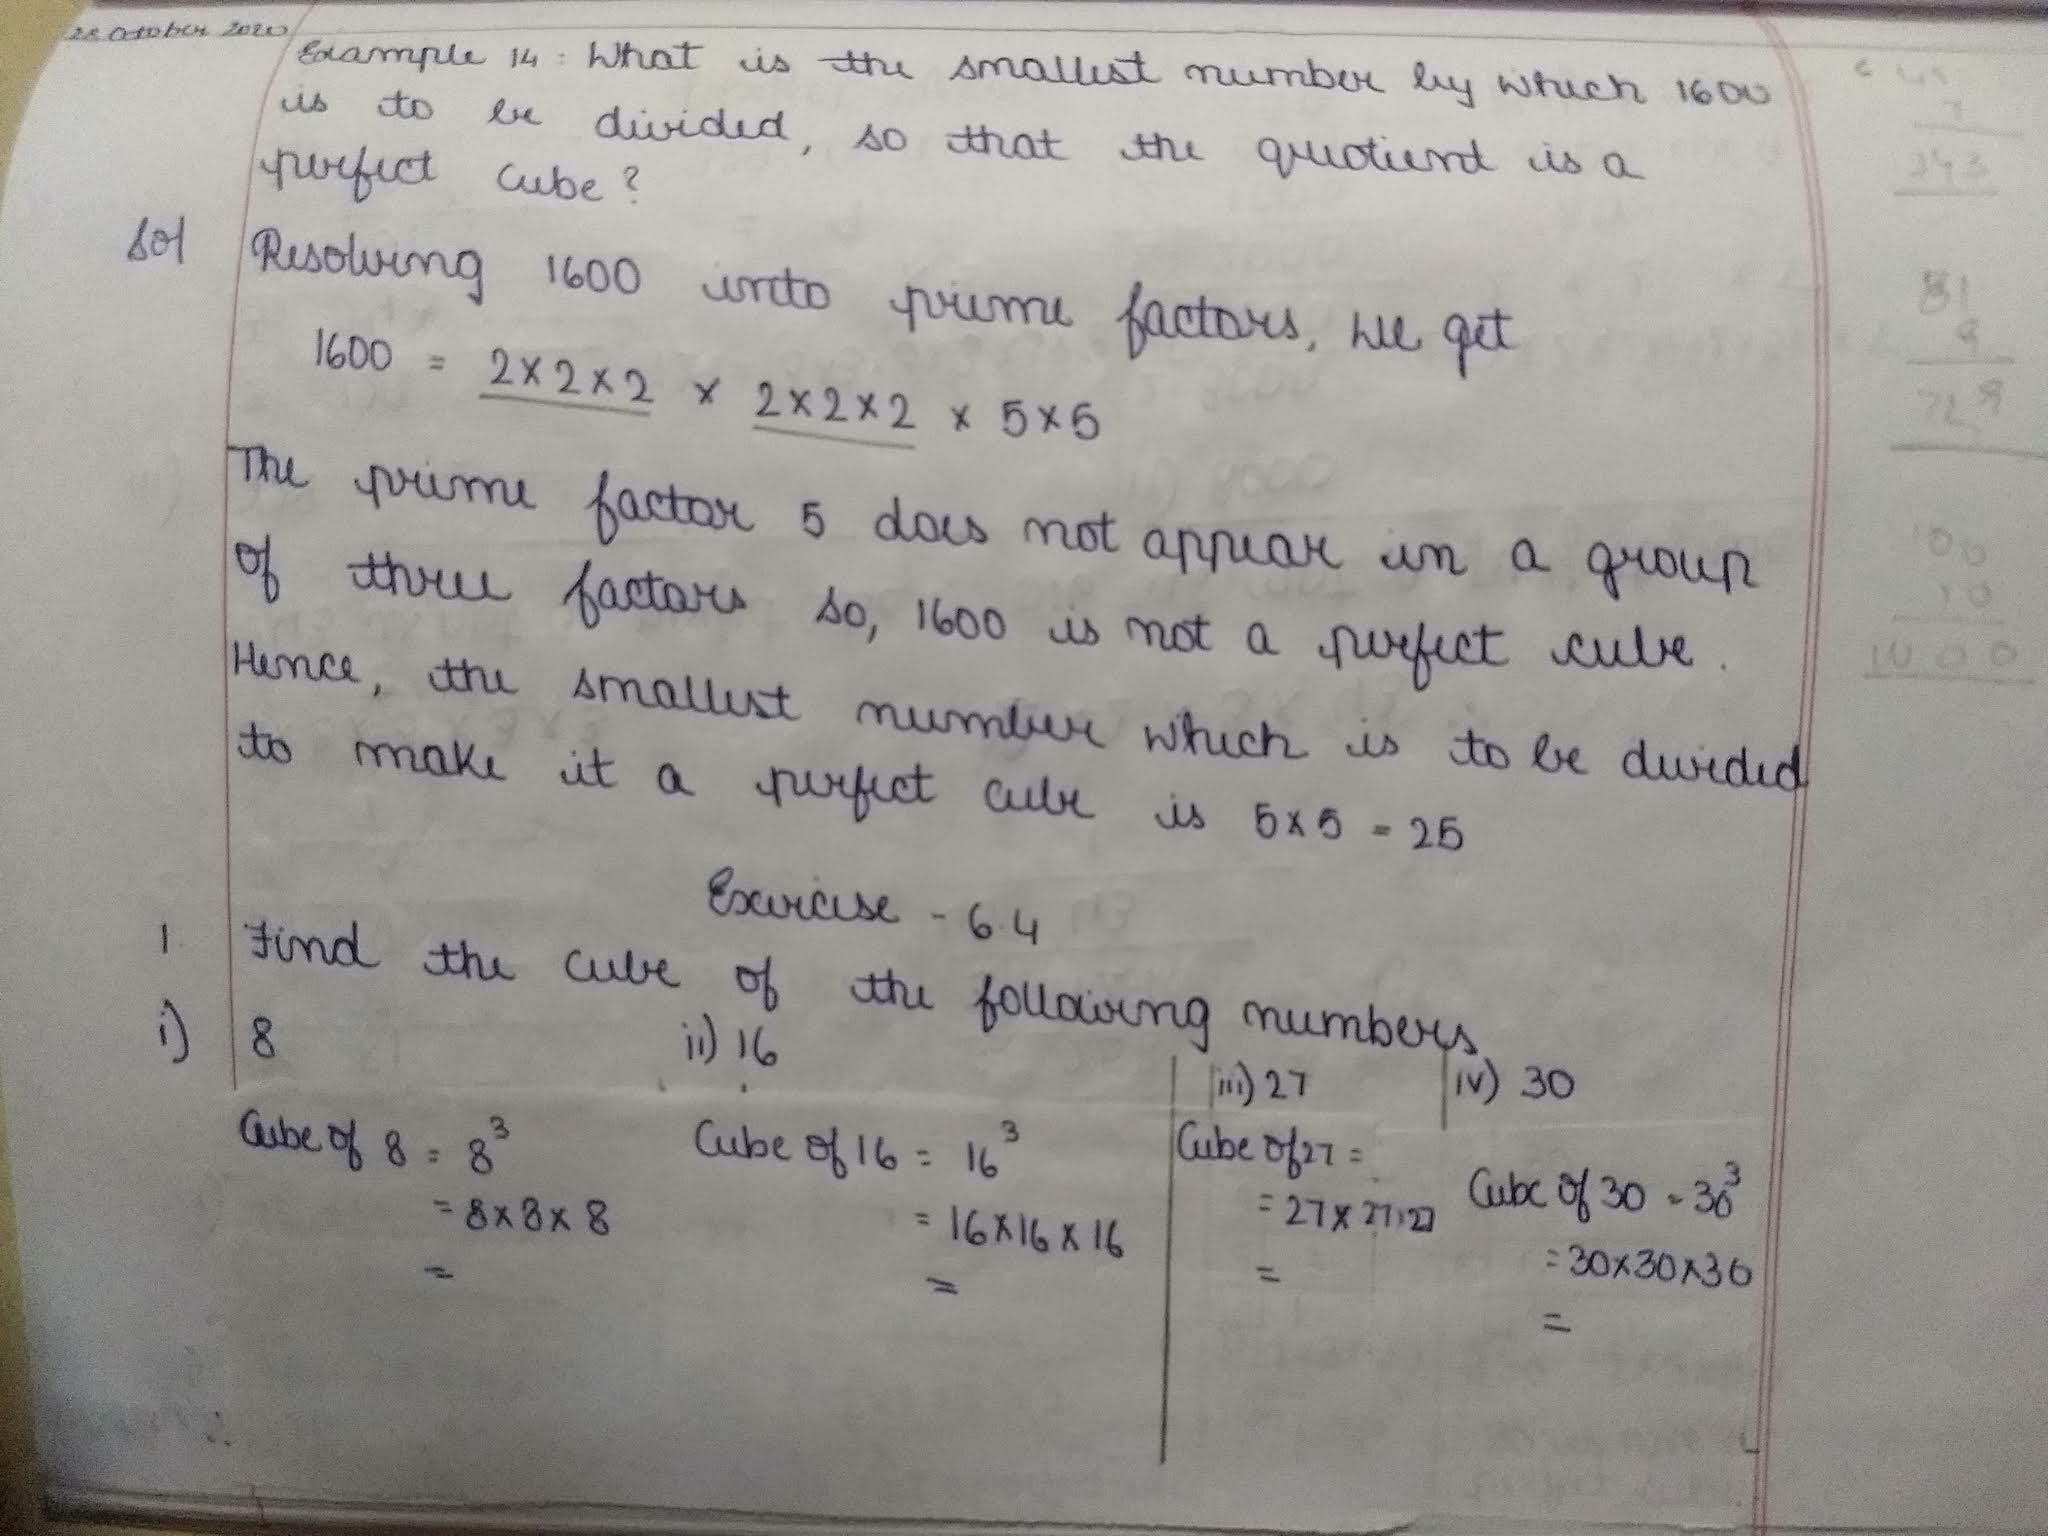 October
Example 14: What is the smallest number by which 1600
is to be divided, so that the quotient is a
perfect cube?
Sol Resolving 1600 into prime factors, we get
1600 = 2×2×2 × 2×2×2 × 5×5
The prime factor 5 does not appear in a group
of three factors so, 1600 is not a perfect cube.
Hence, the smallest number which is to be divided
to make it a perfect cube is 5×5 = 25
Exercise - 6.4
1. Find the cube of the following numbers
i) 8 ii) 16 iii) 27 iv) 30
Cube of 8 = 8³ Cube of 16 = 16³ Cube of 27 = Cube of 30 = 30³
= 8×8×8 = 16×16×16 = 27×27×27 = 30×30×30
= = = =
7
343
81
9
729
100
10
1000